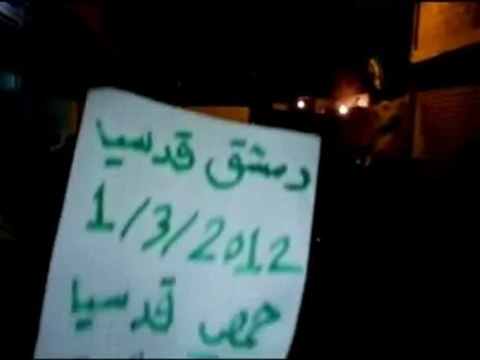 دمشق قدسيا
1/3/2012
حمص قدسيا